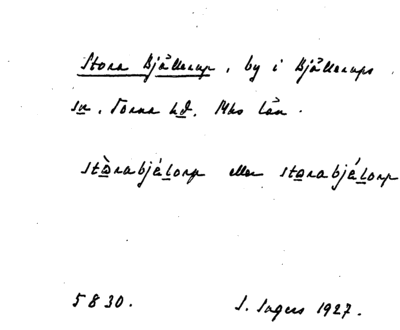 Stora Bjällerup, by i Bjällerups
sn, Torna hd. Mhs län.
stòrabjälorp eller storabjälorp
5830. I. Ingers 1927.